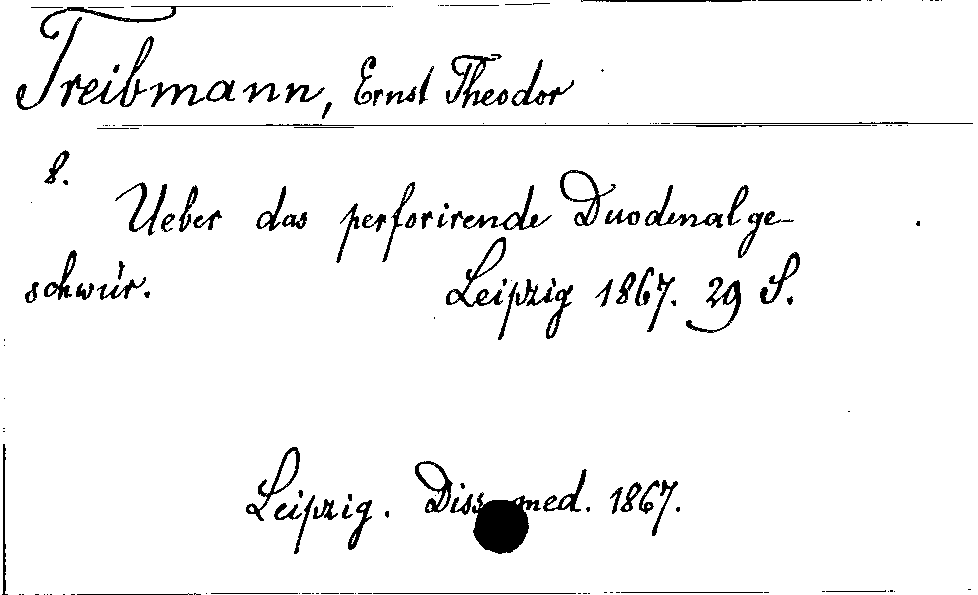 Treibmann, Ernst Theodor
8.
Ueber das perforirende Duodenalge-
schwür. Leipzig 1867. 29 S.
Leipzig. Diss. med. 1867.